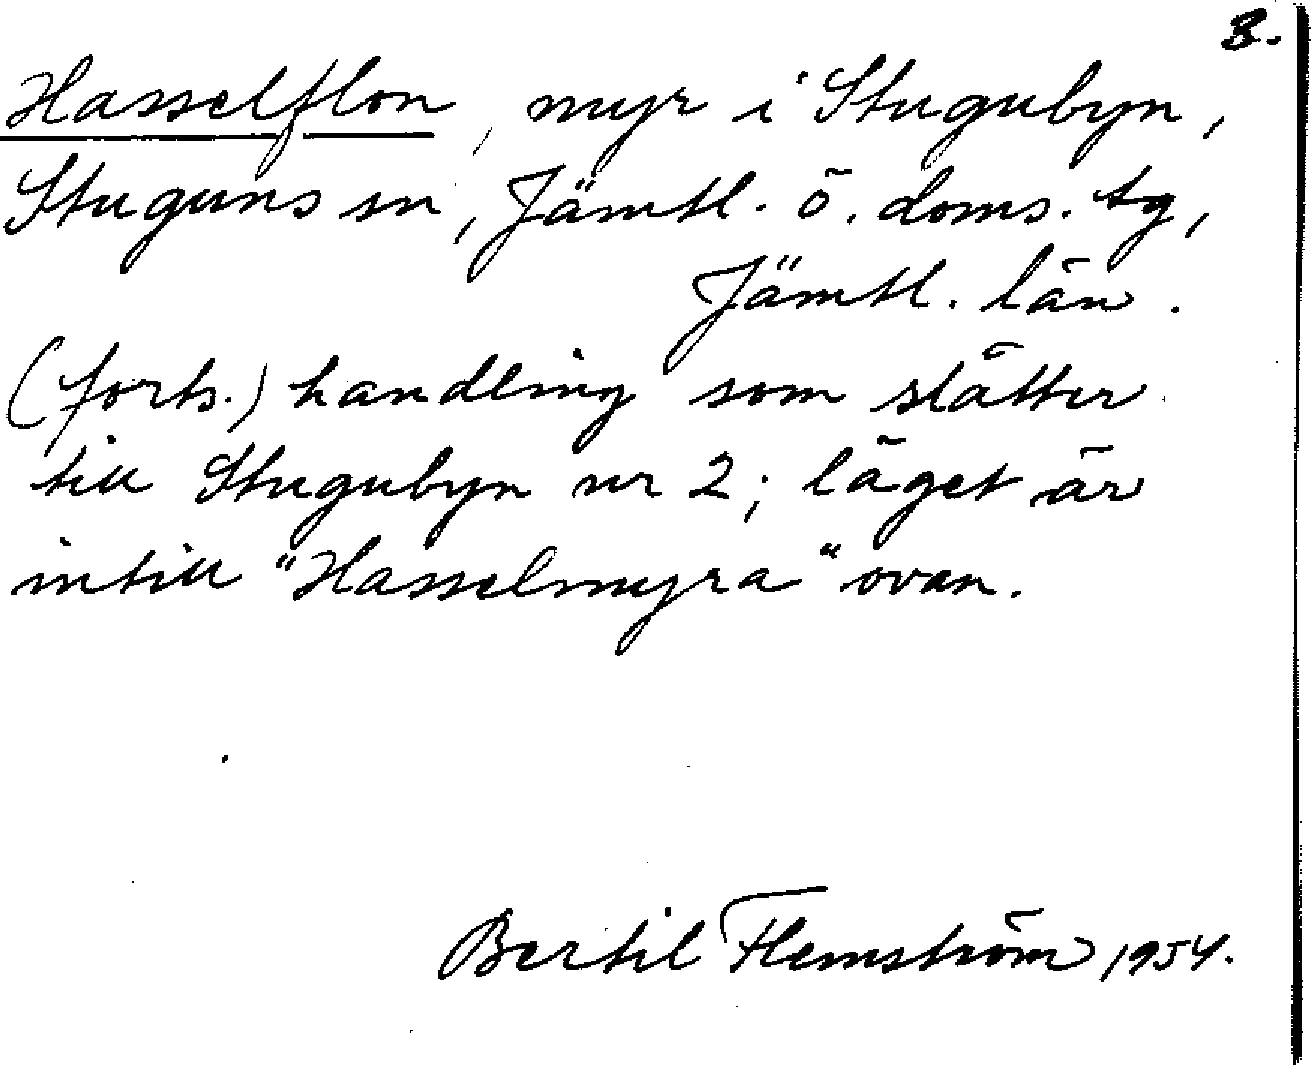 3.
Hasselflon, myr i Stugubyn,
Stuguns sn, Jämtl. ö. doms. tg,
Jämtl. län.
(forts.) handling som slåtter
till Stugubyn nr 2; läget är
intill "Hasselmyra" ovan.
Bertil Flemström 1954.